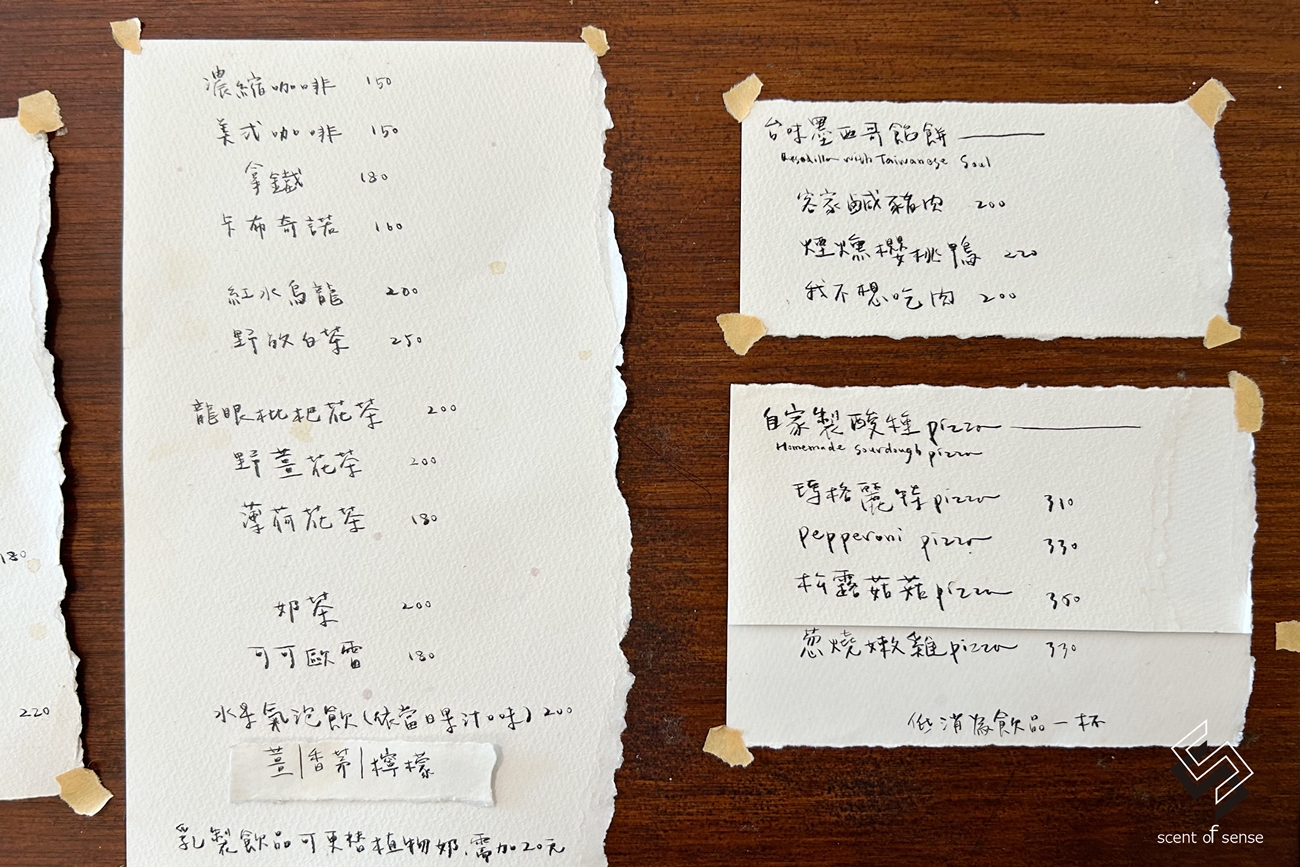 180
220
濃縮咖啡 150
美式咖啡 150
拿鐵 180
卡布奇諾 160
紅水烏龍 200
野放白茶 250
龍眼枇杷花茶 200
野薑花茶 200
薄荷花茶 180
奶茶 200
可可歐蕾 180
水果氣泡飲(依當日果汁口味) 200
薑|香茅|檸檬
乳製飲品可更替植物奶,需加20元
台味墨西哥餡餅
Quesadilla with Taiwanese Soul
客家鹹豬肉 200
煙燻櫻桃鴨 220
我不想吃肉 200
自家製酸種pizza
Homemade sourdough pizza
瑪格麗特pizza 310
pepperoni pizza 330
松露菇菇pizza 350
蔥燒嫩雞pizza 330
低消為飲品一杯
scent of sense